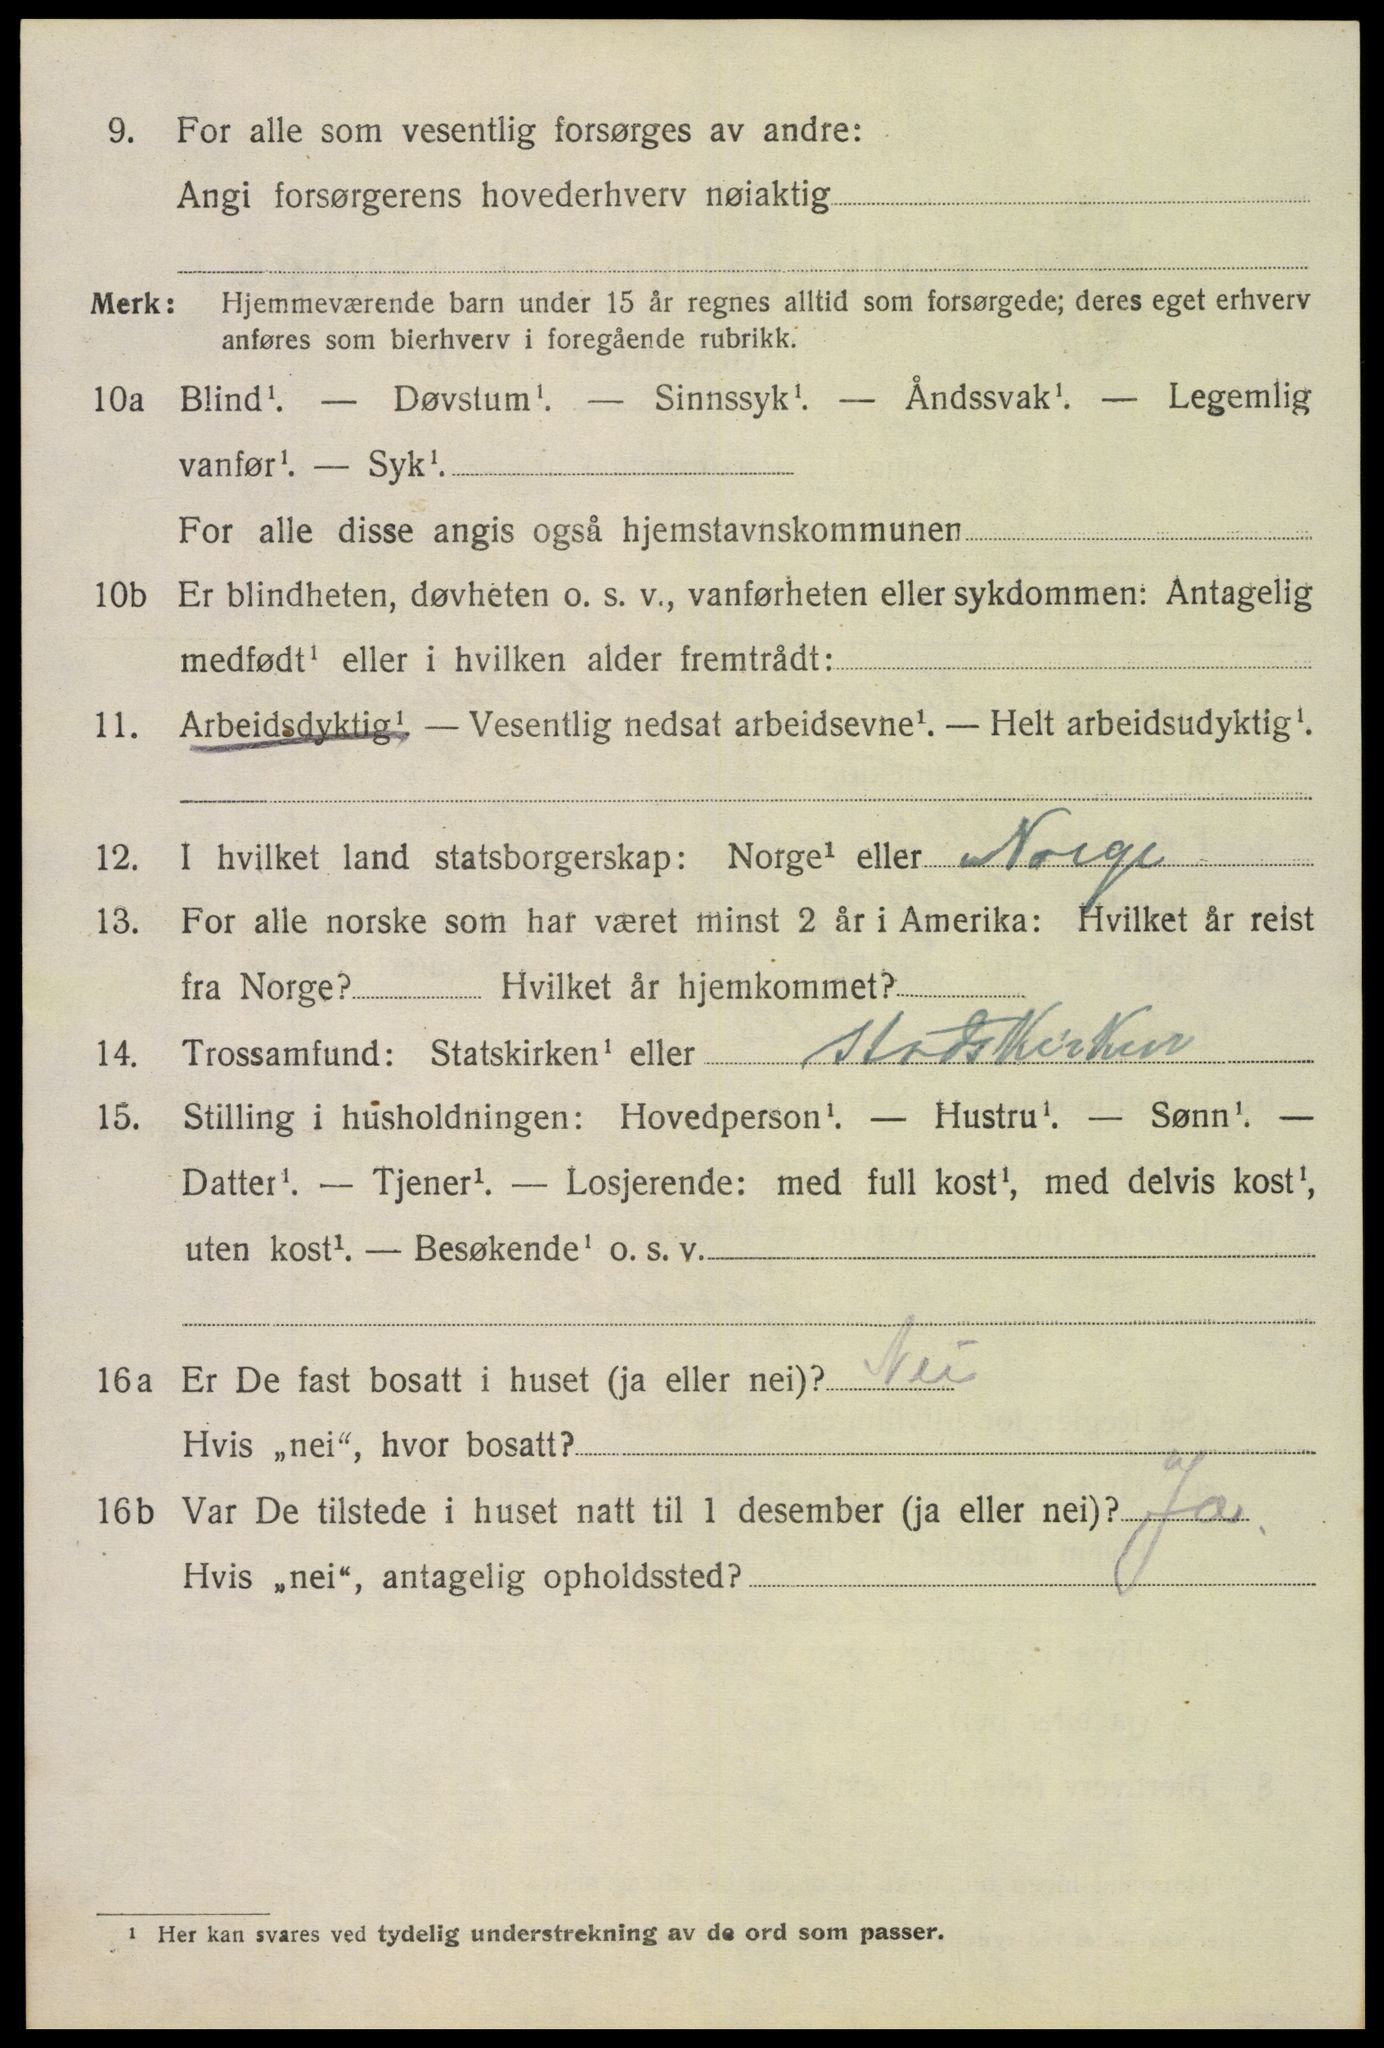 9. For alle som vesentlig forsørges av andre:
Angi forsørgerens hovederhverv nøiaktig
Merk: Hjemmeværende barn under 15 år regnes alltid som forsørgede; deres eget erhverv
anføres som bierhverv i foregående rubrikk.
10a Blind¹. — Døvstum¹. — Sinnssyk¹. — Åndssvak¹. — Legemlig
vanfør¹. — Syk¹.
For alle disse angis også hjemstavnskommunen
10b Er blindheten, døvheten o. s. v., vanførheten eller sykdommen: Antagelig
medfødt¹ eller i hvilken alder fremtrådt:
11. Arbeidsdyktig¹. — Vesentlig nedsat arbeidsevne¹. — Helt arbeidsudyktig¹.
12. I hvilket land statsborgerskap: Norge¹ eller Norge
13. For alle norske som har været minst 2 år i Amerika: Hvilket år reist
fra Norge? Hvilket år hjemkommet?
14. Trossamfund: Statskirken¹ eller Statskirken
15. Stilling i husholdningen: Hovedperson¹. — Hustru¹. — Sønn¹. —
Datter¹. — Tjener¹. — Losjerende: med full kost¹, med delvis kost¹,
uten kost¹. — Besøkende¹ o. s. v.
16a Er De fast bosatt i huset (ja eller nei)? Nei
Hvis „nei“, hvor bosatt?
16b Var De tilstede i huset natt til 1 desember (ja eller nei)? Ja.
Hvis „nei“, antagelig opholdssted?
¹ Her kan svares ved tydelig understrekning av de ord som passer.